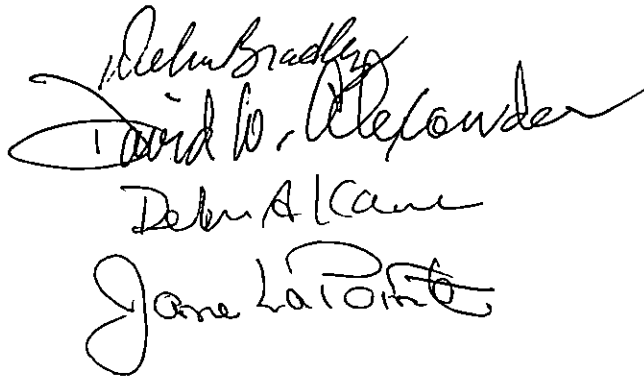 Bradley
David W. Alexander
Debra A Kane
Jane LaPointe